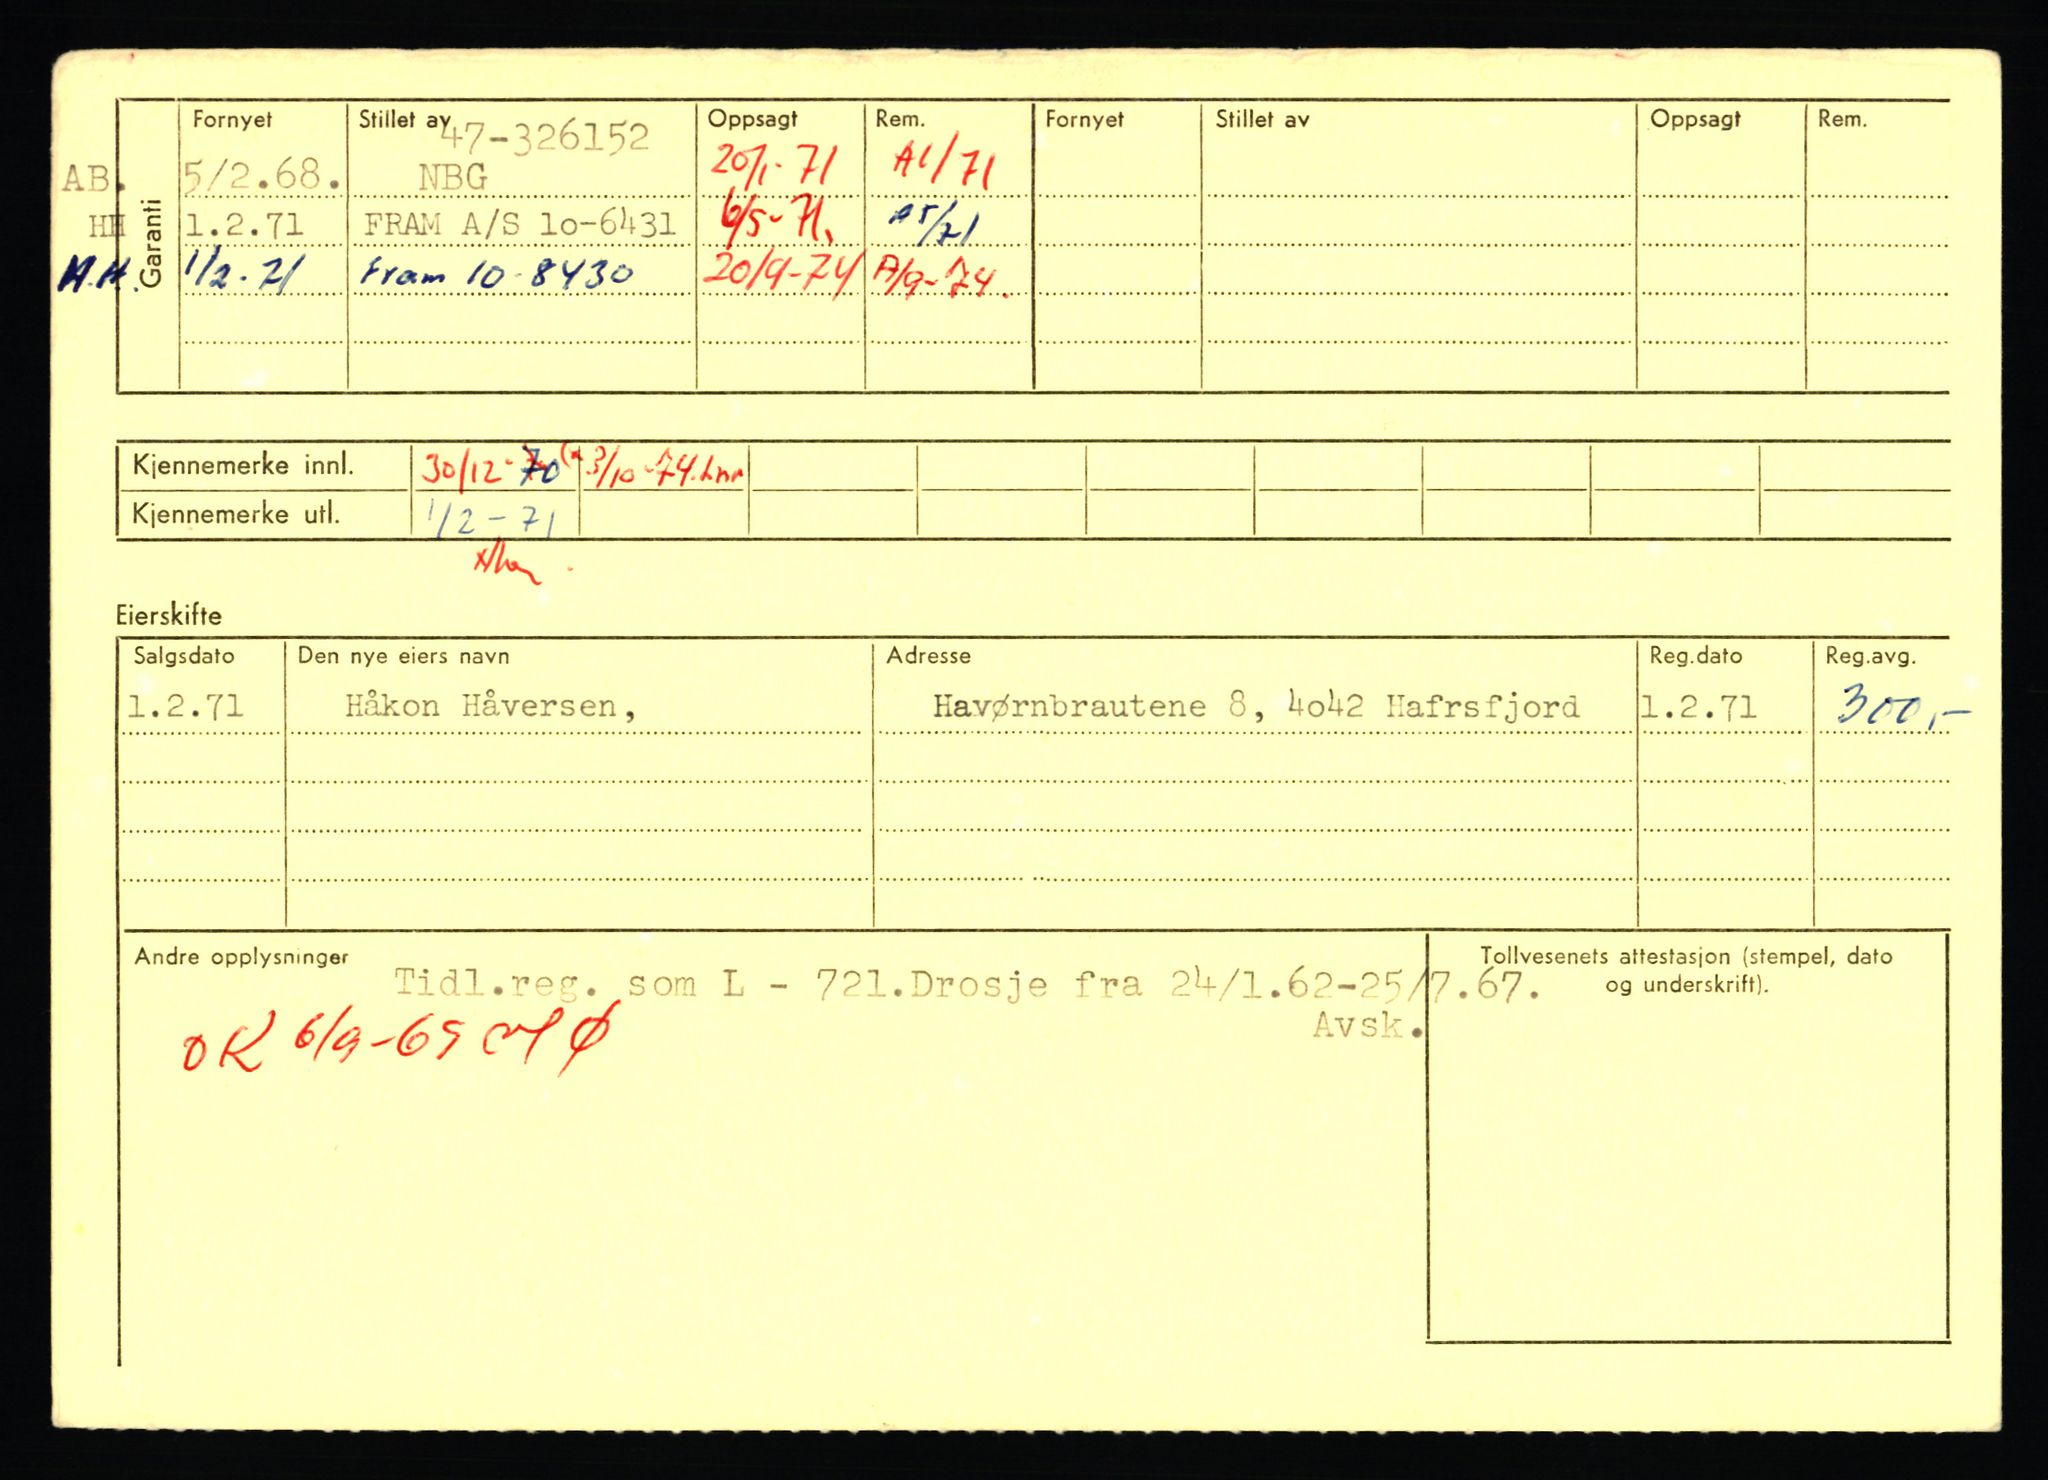 Fornyet Stillet av Oppsagt Rem. Fornyet Stillet av Oppsagt Rem.
47-326152
AB. 5/2.68. NBG 20/1-71 A1/71
Garanti
HH 1.2.71 FRAM A/S 1o-6431 6/5-71. A5/71
H.H. 1/2-71 Fram 10-8430 20/9-74 A/9-74.
Kjennemerke innl. 30/12-70 3/10-74. Lnr
Kjennemerke utl. 1/2-71
Eierskifte
Salgsdato Den nye eiers navn Adresse Reg.dato Reg.avg.
1.2.71 Håkon Håversen, Havørnbrautene 8, 4o42 Hafrsfjord 1.2.71 300,-
Andre opplysninger
Tollvesenets attestasjon (stempel, dato
og underskrift).
Tidl.reg. som L - 721.Drosje fra 24/1.62-25/7.67.
Avsk.
OK 6/9-69 Ø